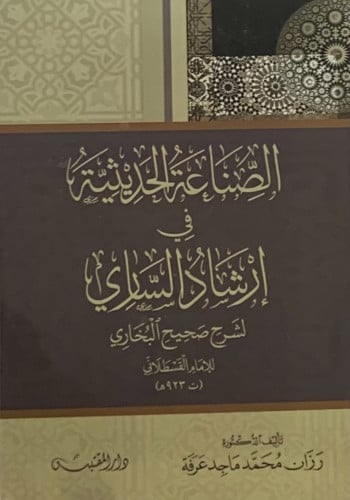 الصِّنَاعَةُ الحَدِيثِيَّةُ
فِي
إِرْشَادِ السَّارِي
لشَرْحِ صَحِيحِ البُخَارِي
للإِمَامِ القَسْطَلَانِيّ
(ت ٩٢٣هـ)
تَأليفُ الدُّكتُورَة
رَزَان مُحَمَّد مَاجِد عَرَفَة
دار المقتبس